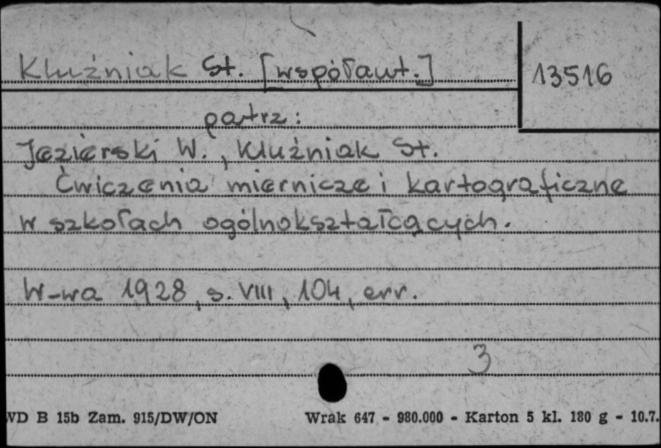 Kluźniak St. [współaut.]
13516
patrz:
Jezierski W., Kluźniak St.
Ćwiczenia miernicze i kartograficzne
w szkołach ogólnokształcących.
W-wa 1928, s. VIII, 104, err.
3
WD B 15b Zam. 915/DW/ON Wrak 647 - 980.000 - Karton 5 kl. 180 g - 10.7.